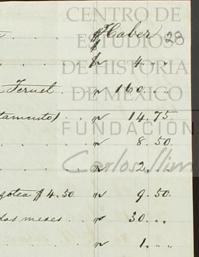 CENTRO DE
ESTUDIOS
DE HISTORIA
DE MÉXICO
FUNDACIÓN
Carlos Slim
Haber 28
" 4 . . .
Fernet . . " 160 . . .
" 14.75
" 8.50
" 2 . .
$4.50 " 9.50
meses . . " 30 . . .
" 1 . . .